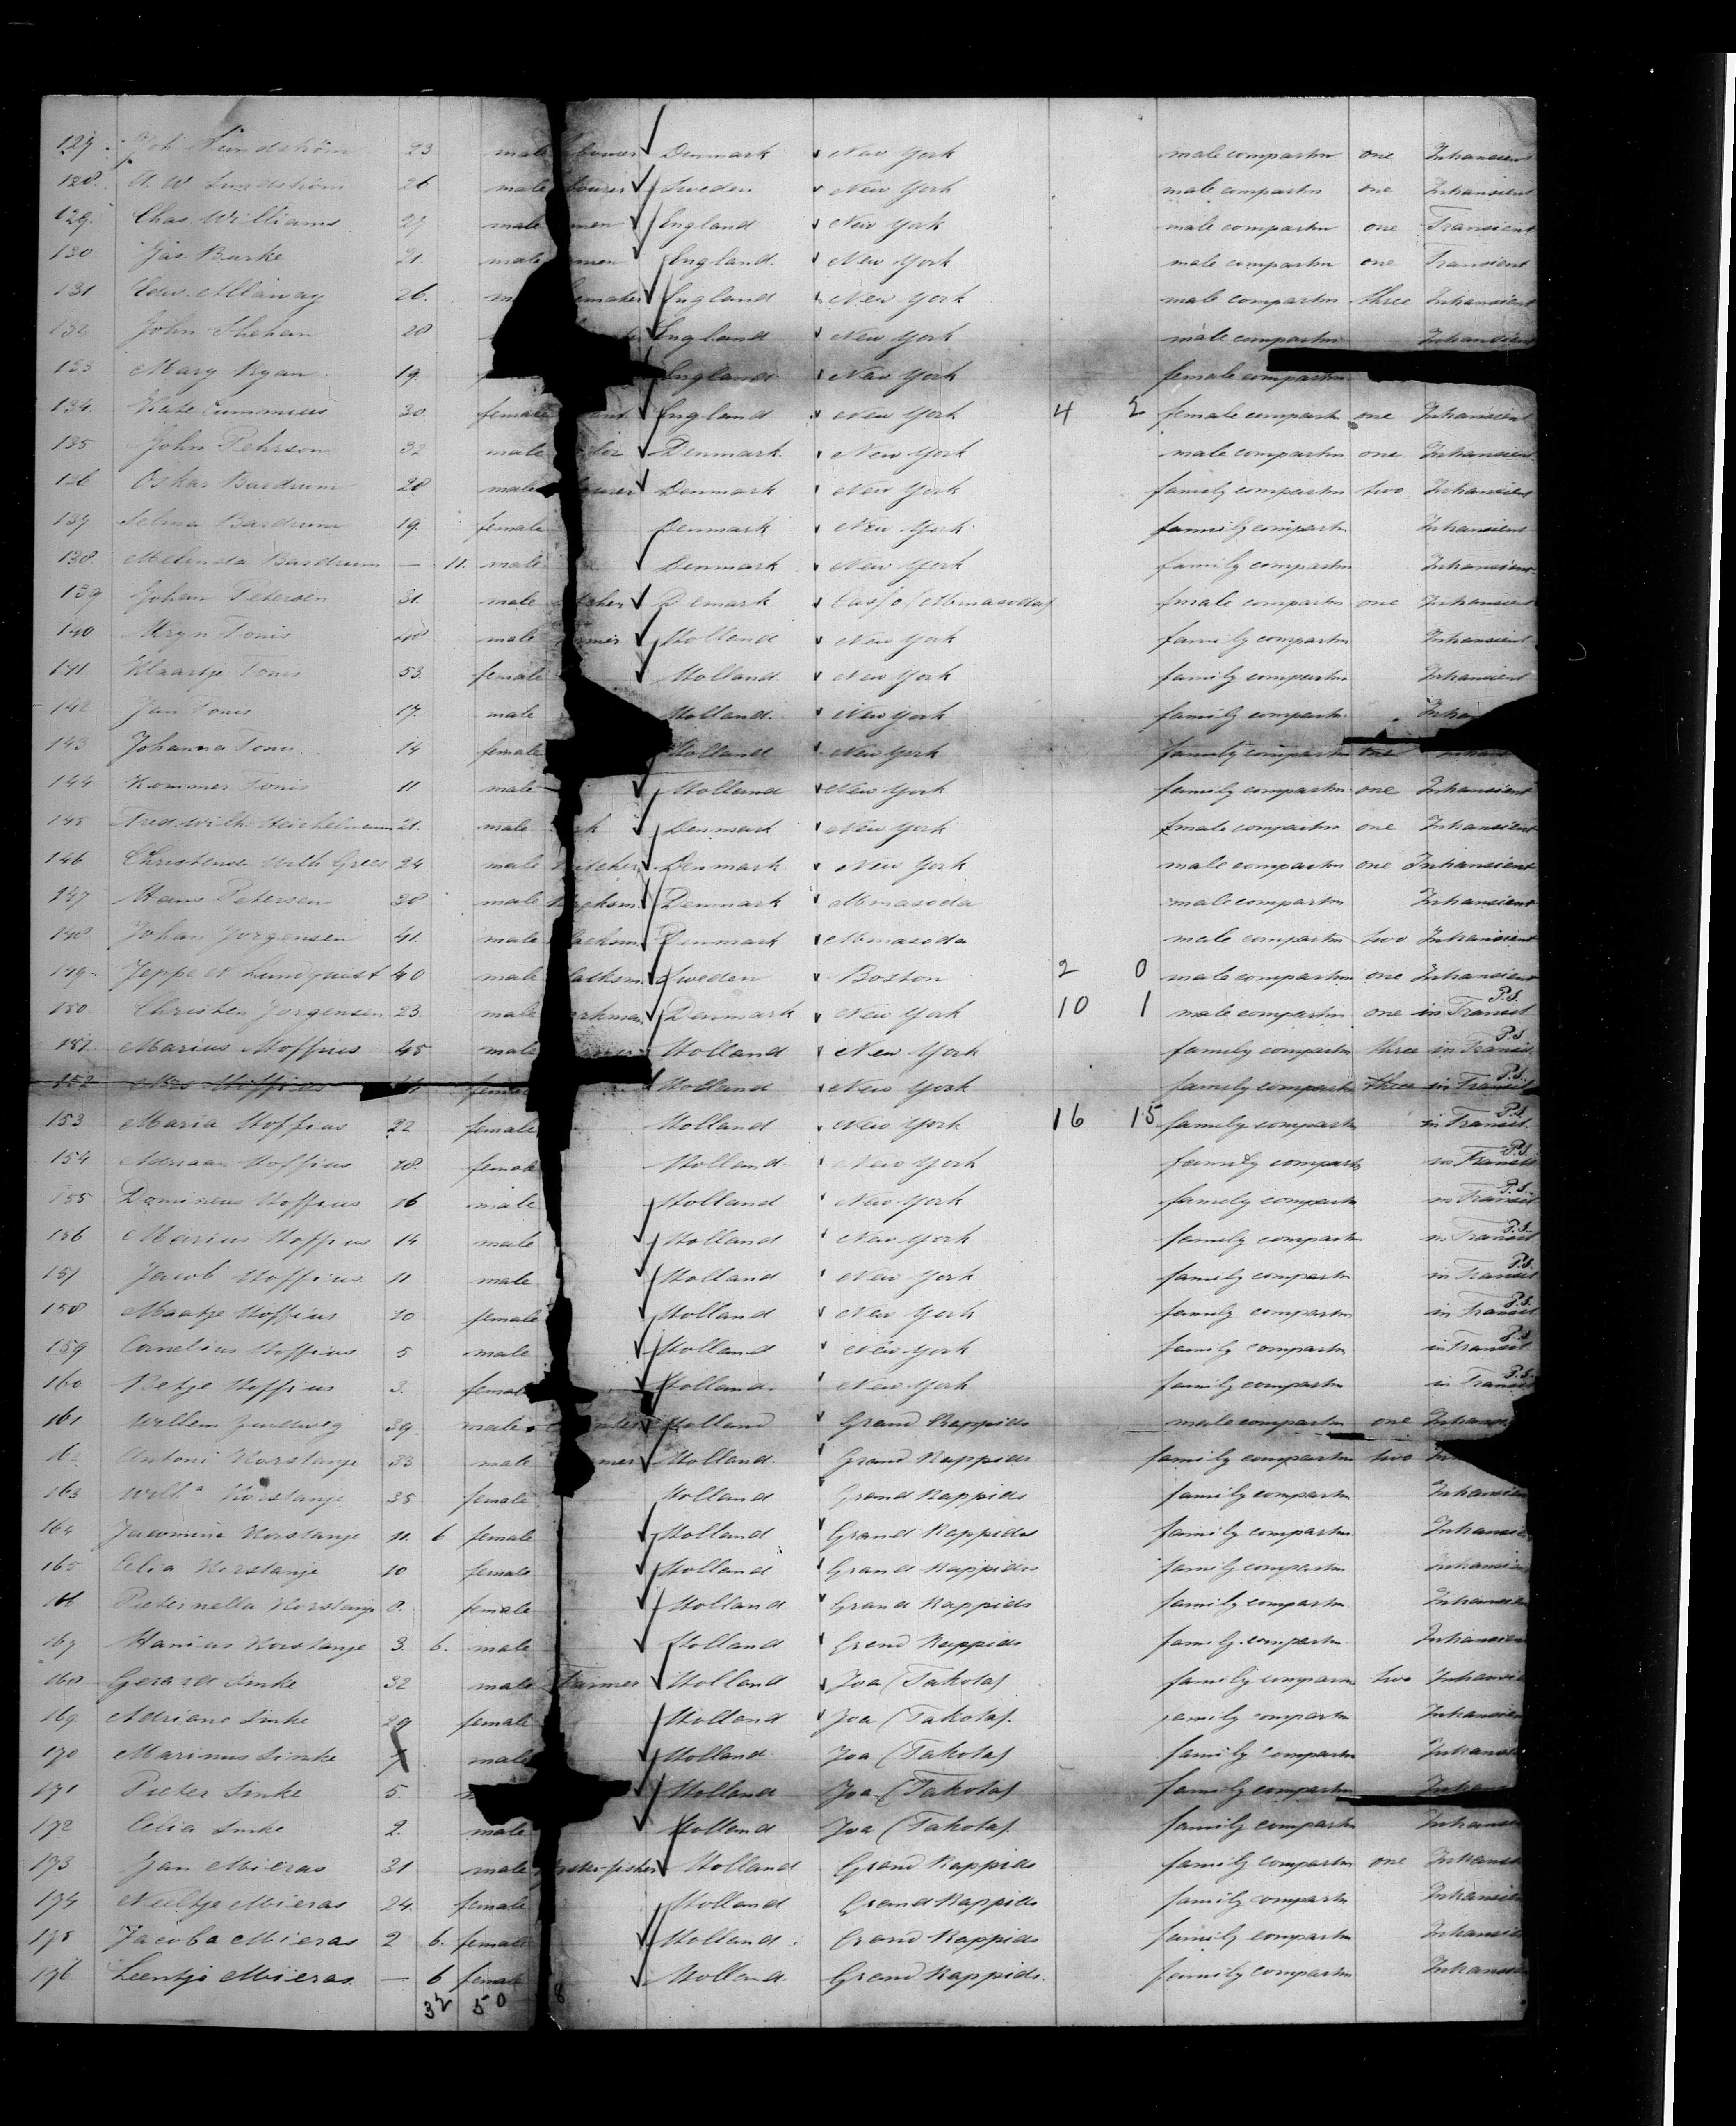 127. Joh Lundström 23 male bourer Denmark New York male compartm one Intransient
128. A. W Lundström 26 male bourer Sweden New York male compartm one Intransient
129. Chas. Williams 27 male men England New York male compartm one Transient
130 Jas. Burke 21. male men England. New York male compartm one Transient
131 Edw. Allaway 26. m emaker England New York male compartm three Intransient
132 John Shehan 28 England New York male compartm Intransient
133 Mary Ryan. 19. England New York female compartm
134. Kate Cummins 30. female ant England New York 4 2 female compartm one Intransient
135 John Pehrson 32 male Denmark. New York male compartm one Intransient
136 Oskar Bardrum 28 male bourer Denmark New York family compartm two Intransient
137 Selma Bardrum 19. female Denmark New York family compartm Intransient
138. Melinda Bardrum — 11. male Denmark New York family compartm Intransient
139 Johan Petersen 31. male Demark male compartm one Intransient
140 Kryn Tonis male Holland New York family compartm Intransient
141 Klaartje Tonis 53. female Holland New York family compartm Intransient
142 Jan Tonis 17. male Holland. New York family compartm
143 Johanna Tonis 14 female Holland New York family compartm one
144 Kommer Tonis 11 male Holland New York family compartm one Intransient
145 Fred. Wilh. 21. male Denmark New York male compartm one Intransient
146 24 male Denmark New York male compartm one Intransient
147 Hans Petersen 38 male Denmark male compartm Intransient
148 Johan Jorgensen 41. male lacksm. Denmark male compartm two Intransient
149. Jeppe N Lundquist 40 male lacksm. Sweden Boston 2 0 male compartm one Intransient
150 Christen Jorgensen 23. male rkman Denmark New York 10 1 male compartm one in Transit P.S.
151. Marius Hoffius 45 male Holland New York family compartm three in Transit P.S.
152 Mrs Hoffius female Holland New York family compartm three in Transit P.S.
153 Maria Hoffius 22 female Holland New York 16 15 family compartm in Transit. P.S.
154 Adriaan Hoffius 18. female Holland. New York family compartm in Transit P.S.
155 Domineus Hoffius 16 male Holland New York family compartm in Transit P.S.
156 Marius Hoffius 14 male Holland New York family compartm in Transit P.S.
157 Jacob Hoffius 11 male Holland New York family compartm in Transit P.S.
158 Maatje Hoffius 10 female Holland New York family compartm in Transit P.S.
159 Cornelius Hoffius 5 male Holland New York family compartm in Transit P.S.
160 Betje Hoffius 3. female Holland. New York family compartm in Transit P.S.
161 Willem 39. male Holland Grand Rappids male compartm one
Antoni Korstanje 33 male Holland. Grand Rappids family compartm two
163 Korstanje 35 female Holland Grand Rappids family compartm Intransient
164 Jacomina Korstanje 11. 6 female Holland Grand Rappids family compartm
165 Celia Korstanje 10 female Holland Grand Rappids family compartm
166 Pieternella Korstanje 8. female Holland Grand Rappids family compartm
167 Korstanje 3. 6. male Holland Grand Rappids family compartm
168 Gerard Sinke 32 male Farmer Holland Joa (Takota) family compartm two
169. Adriane Sinke 29 female Holland Joa (Takota). family compartm
170 Marinus Sinke male Holland. Joa (Takota) family compartm
171 Pieter Sinke 5. Holland Joa (Takota) family compartm
172 Celia Sinke 2. male Holland Joa (Takota). family compartm
173 Jan Mieras 31 male Holland Grand Rappids family compartm one
174 Neeltje Mieras 24. female Holland Grand Rappids family compartm
175 Jacoba Mieras 2 6. female Holland. Grand Rappids family compartm
176 Leentje Mieras. — 6 female Holland. Grand Rappids. family compartm
32 50 8